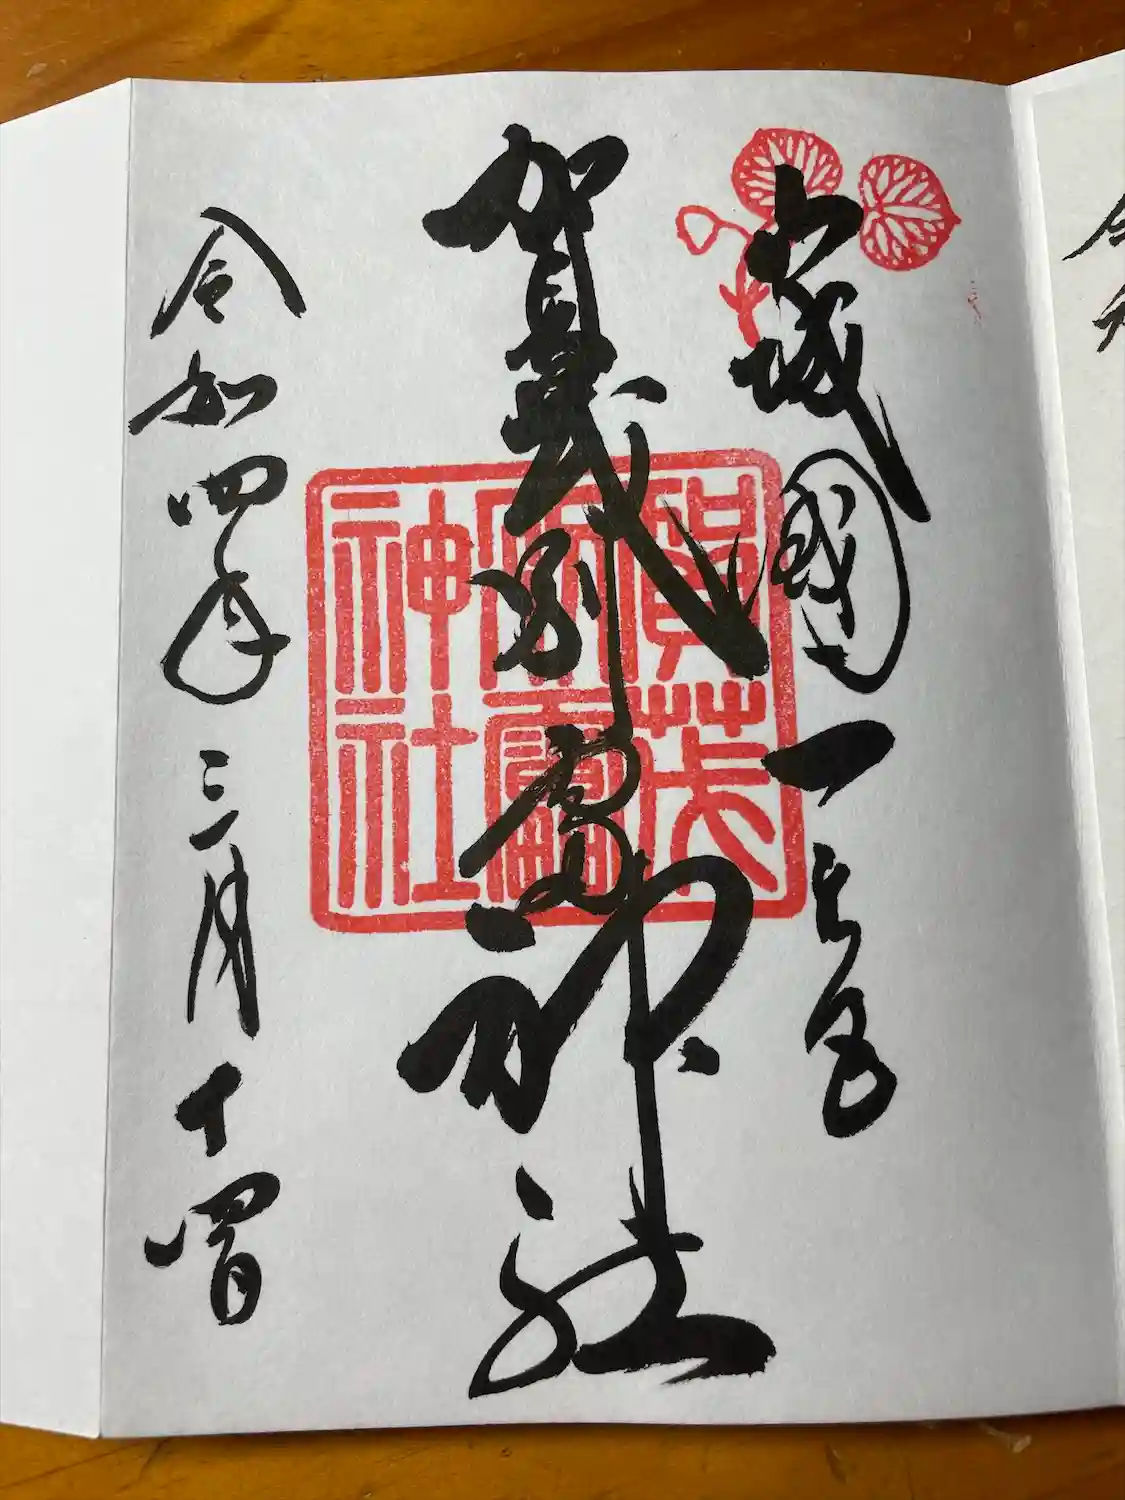 山城國一之宮
賀茂別雷神社
賀茂
別雷
神社
令和四年三月十四日
令和